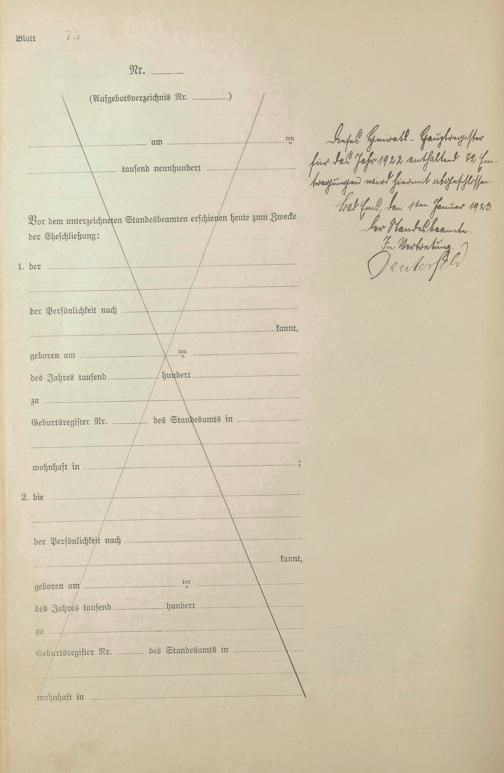 Blatt 73
Nr.
(Aufgebotsverzeichnis Nr. )
am ten
tausend neunhundert
Vor dem unterzeichneten Standesbeamten erschienen heute zum Zwecke
der Eheschließung:
1. der
der Persönlichkeit nach
kannt,
geboren am ten
des Jahres tausend hundert
zu
Geburtsregister Nr. des Standesamts in
wohnhaft in ;
2. die
der Persönlichkeit nach
kannt,
geboren am ten
des Jahres tausend hundert
zu
Geburtsregister Nr. des Standesamts in
wohnhaft in
Dieses Heirats-Hauptregister
für das Jahr 1922 enthaltend 72 Ein-
tragungen wird hiermit abgeschlossen.
Bad Ems, den 1ten Januar 1923
Der Standesbeamte.
In Vertretung.